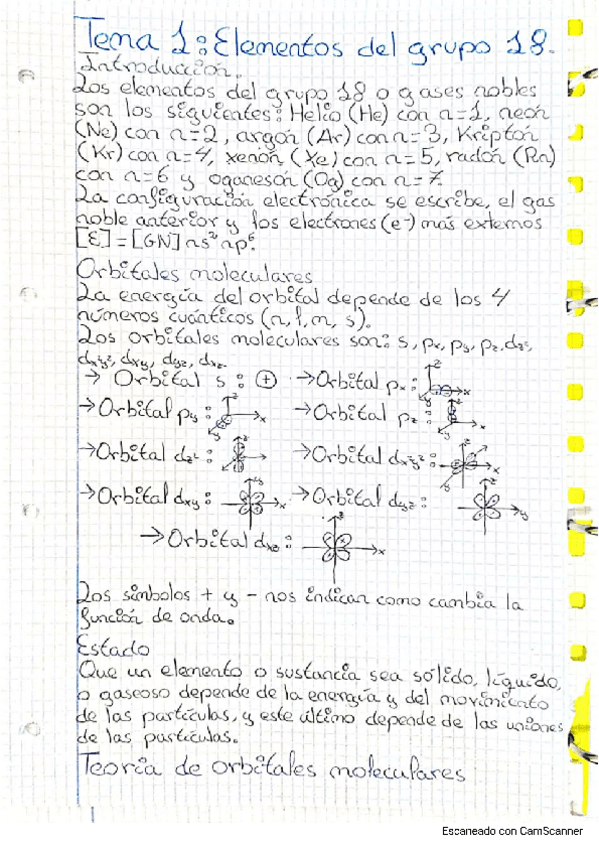 Tema 1: Elementos del grupo 18.
Introducción.
Los elementos del grupo 18 o gases nobles
son los siguientes: Helio (He) con n=1, neón
(Ne) con n=2, argón (Ar) con n=3, Kriptón
(Kr) con n=4, xenón (Xe) con n=5, radón (Rn)
con n=6 y oganesón (Og) con n=7.
La configuración electrónica se escribe, el gas
noble anterior y los electrones (e⁻) más externos
[E]=[GN] ns² np⁶.
Orbitales moleculares
La energía del orbital depende de los 4
números cuánticos (n, l, m, s).
Los orbitales moleculares son: s, px, py, pz, dz²,
dx²y², dxy, dyz, dxz
→ Orbital s: + → Orbital px: z x y
→ Orbital py: z x y → Orbital pz: z x y
→ Orbital dz²: → Orbital dx²y²: x y
→ Orbital dxy: x → Orbital dyz: z y
→ Orbital dxz: z x
Los símbolos + y - nos indican como cambia la
función de onda.
Estado
Que un elemento o sustancia sea sólido, líquido,
o gaseoso depende de la energía y del movimiento
de las partículas, y este último depende de las uniones
de las partículas.
Teoría de orbitales moleculares
Escaneado con CamScanner